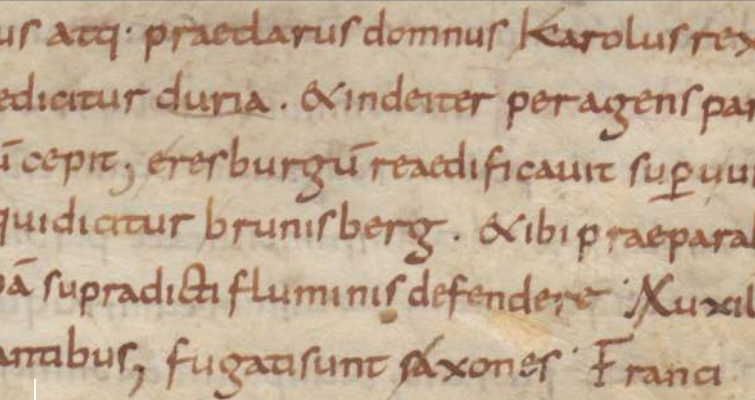 us atq· praeclarus domnus Karolus rex
edicitur duria . & inde iter peragens par
ū cepit, eresburgū reaedificauit sup uui
quidicitur brunisberg . & ibi praeparab
pā supradicti fluminis defendere · Auxil
antibus, fugati sunt saxones · Franci